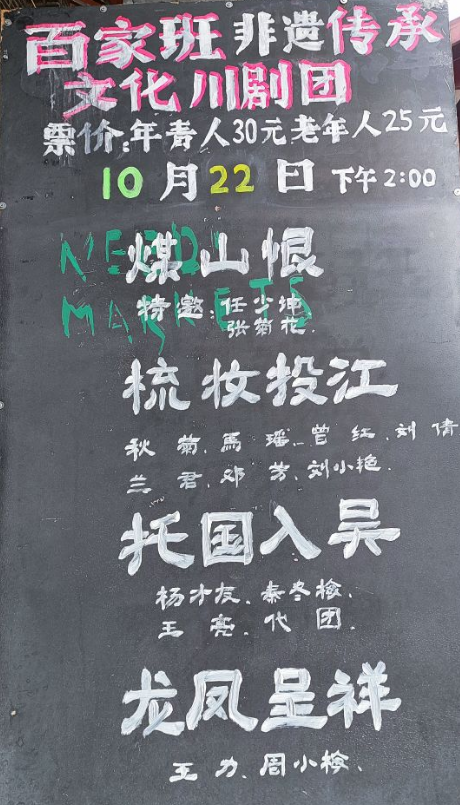 百家班非遗传承
文化川剧团
票价:年青人30元老年人25元
10月22日 下午2:00
煤山恨
特邀:任少坤
张菊花.
梳妆投江
秋菊、马瑶、曾红、刘倩
兰君、邓芳、刘小艳.
托国入吴
杨才友、秦冬梅、
王亮、代团.
龙凤呈祥
王力、周小梅、
MARKETS